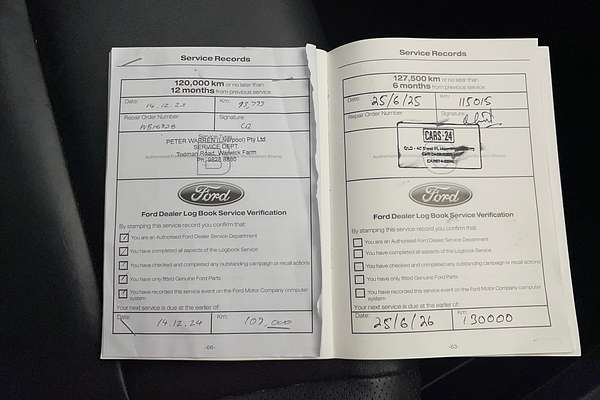 Service Records
120,000 km or no later than
12 months from previous service
Date: 14.12.23 Km:
Repair Order Number Signature
PETER WARREN (Liverpool) Pty Ltd
SERVICE DEPT.
Warwick Farm
Ford
Ford Dealer Log Book Service Verification
By stamping this service record you confirm that:
You are an Authorised Ford Dealer Service Department
You have completed all aspects of the Logbook Service
You have checked and completed any outstanding campaign or recall actions
You have only fitted Genuine Ford Parts
You have recorded this service event on the Ford Motor Company computer
system
Your next service is due at the earlier of:
Date: 14.12.24 Km: 107,000
-66-
Service Records
127,500 km or no later than
6 months from previous service
Date: 25/6/25 Km: 115015
Repair Order Number Signature
CARS 24
Ford
Ford Dealer Log Book Service Verification
By stamping this service record you confirm that:
You are an Authorised Ford Dealer Service Department
You have completed all aspects of the Logbook Service
You have checked and completed any outstanding campaign or recall actions
You have only fitted Genuine Ford Parts
You have recorded this service event on the Ford Motor Company computer
system
Your next service is due at the earlier of:
Date: 25/6/26 Km: 130000
-63-